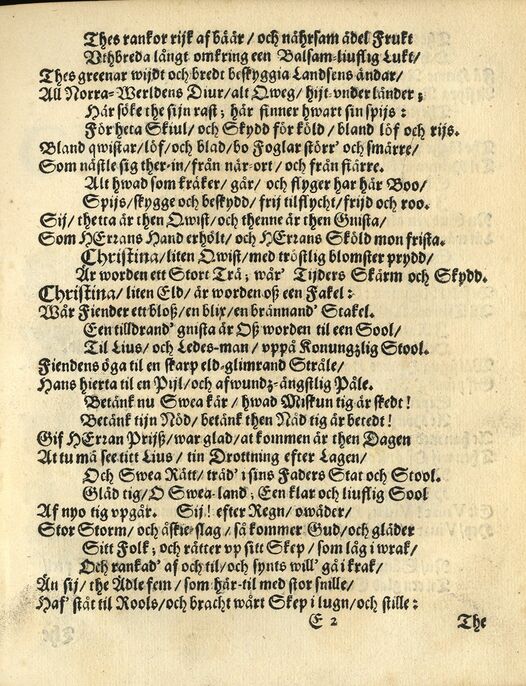 Thes rankor rijk af bäär/ och nährsam ädel Frukt
Vthbreda långt omkring een Balsam-liuflig Lukt/
Thes greenar wijdt och bredt beskyggia Landsens ändar/
All Norra-Werldens Diur/ alt Qweg/ hijt-vnder länder;
Här söke the sijn rast; här finner hwart sin spijs:
För heta Skiul/ och Skydd för köld/ bland löf och rijs.
Bland qwistar/löf/ och blad/ bo Foglar störr' och smärre/
Som nästle sig ther-in/ från när-ort/ och från fiärre.
Alt hwad som kräker/ gär/ och flyger har här Boo/
Spijs/skygge och beskydd/ frij tilflycht/ frijd och roo.
Sij/ thetta är then Qwist/ och thenne är then Gnista/
Som HErrans Hand erhölt/ och HErrans Sköld mon frista.
Christina/ liten Qwist/ med tröstlig blomster prydd/
Är worden ett Stort Trä; wår' Tijders Skärm och Skydd.
Christina/ liten Eld/ är worden oß een Fakel:
Wår Fiender ett bloß/ en blix/ en brännand' Stakel.
Een tilldrand' gnista är Oß worden til een Sool/
Til Lius/ och Ledes-man/ vppå Konungzlig Stool.
Fiendens öga til en skarp eld-glimrand Stråle/
Hans hierta til en Pijl/ och afwundz-ängstlig Påle.
Betänk nu Swea kär/ hwad Miskun tig är skedt!
Betänk tijn Nöd/ betänk then Nåd tig är betedt!
Gif HErran Prijß/ war glad/ at kommen är then Dagen
At tu må see titt Lius/ tin Drottning efter Lagen/
Och Swea Rätt/ träd' i sins Faders Stat och Stool.
Gläd tig/ O Swea-land; Een klar och liuflig Sool
Af nyo tig vpgår. Sij! efter Regn/ owäder/
Stor Storm/ och åskie-slag/ så kommer Gud/ och gläder
Sitt Folk; och rätter vp sitt Skep/ som låg i wrak/
Och rankad' af och til/ och synts will' gå i krak/
Än sij/ the Ädle fem/ som här-til med stor snille/
Haf' ståt til Rools/ och bracht wårt Skep i lugn/ och stille:
E 2 The